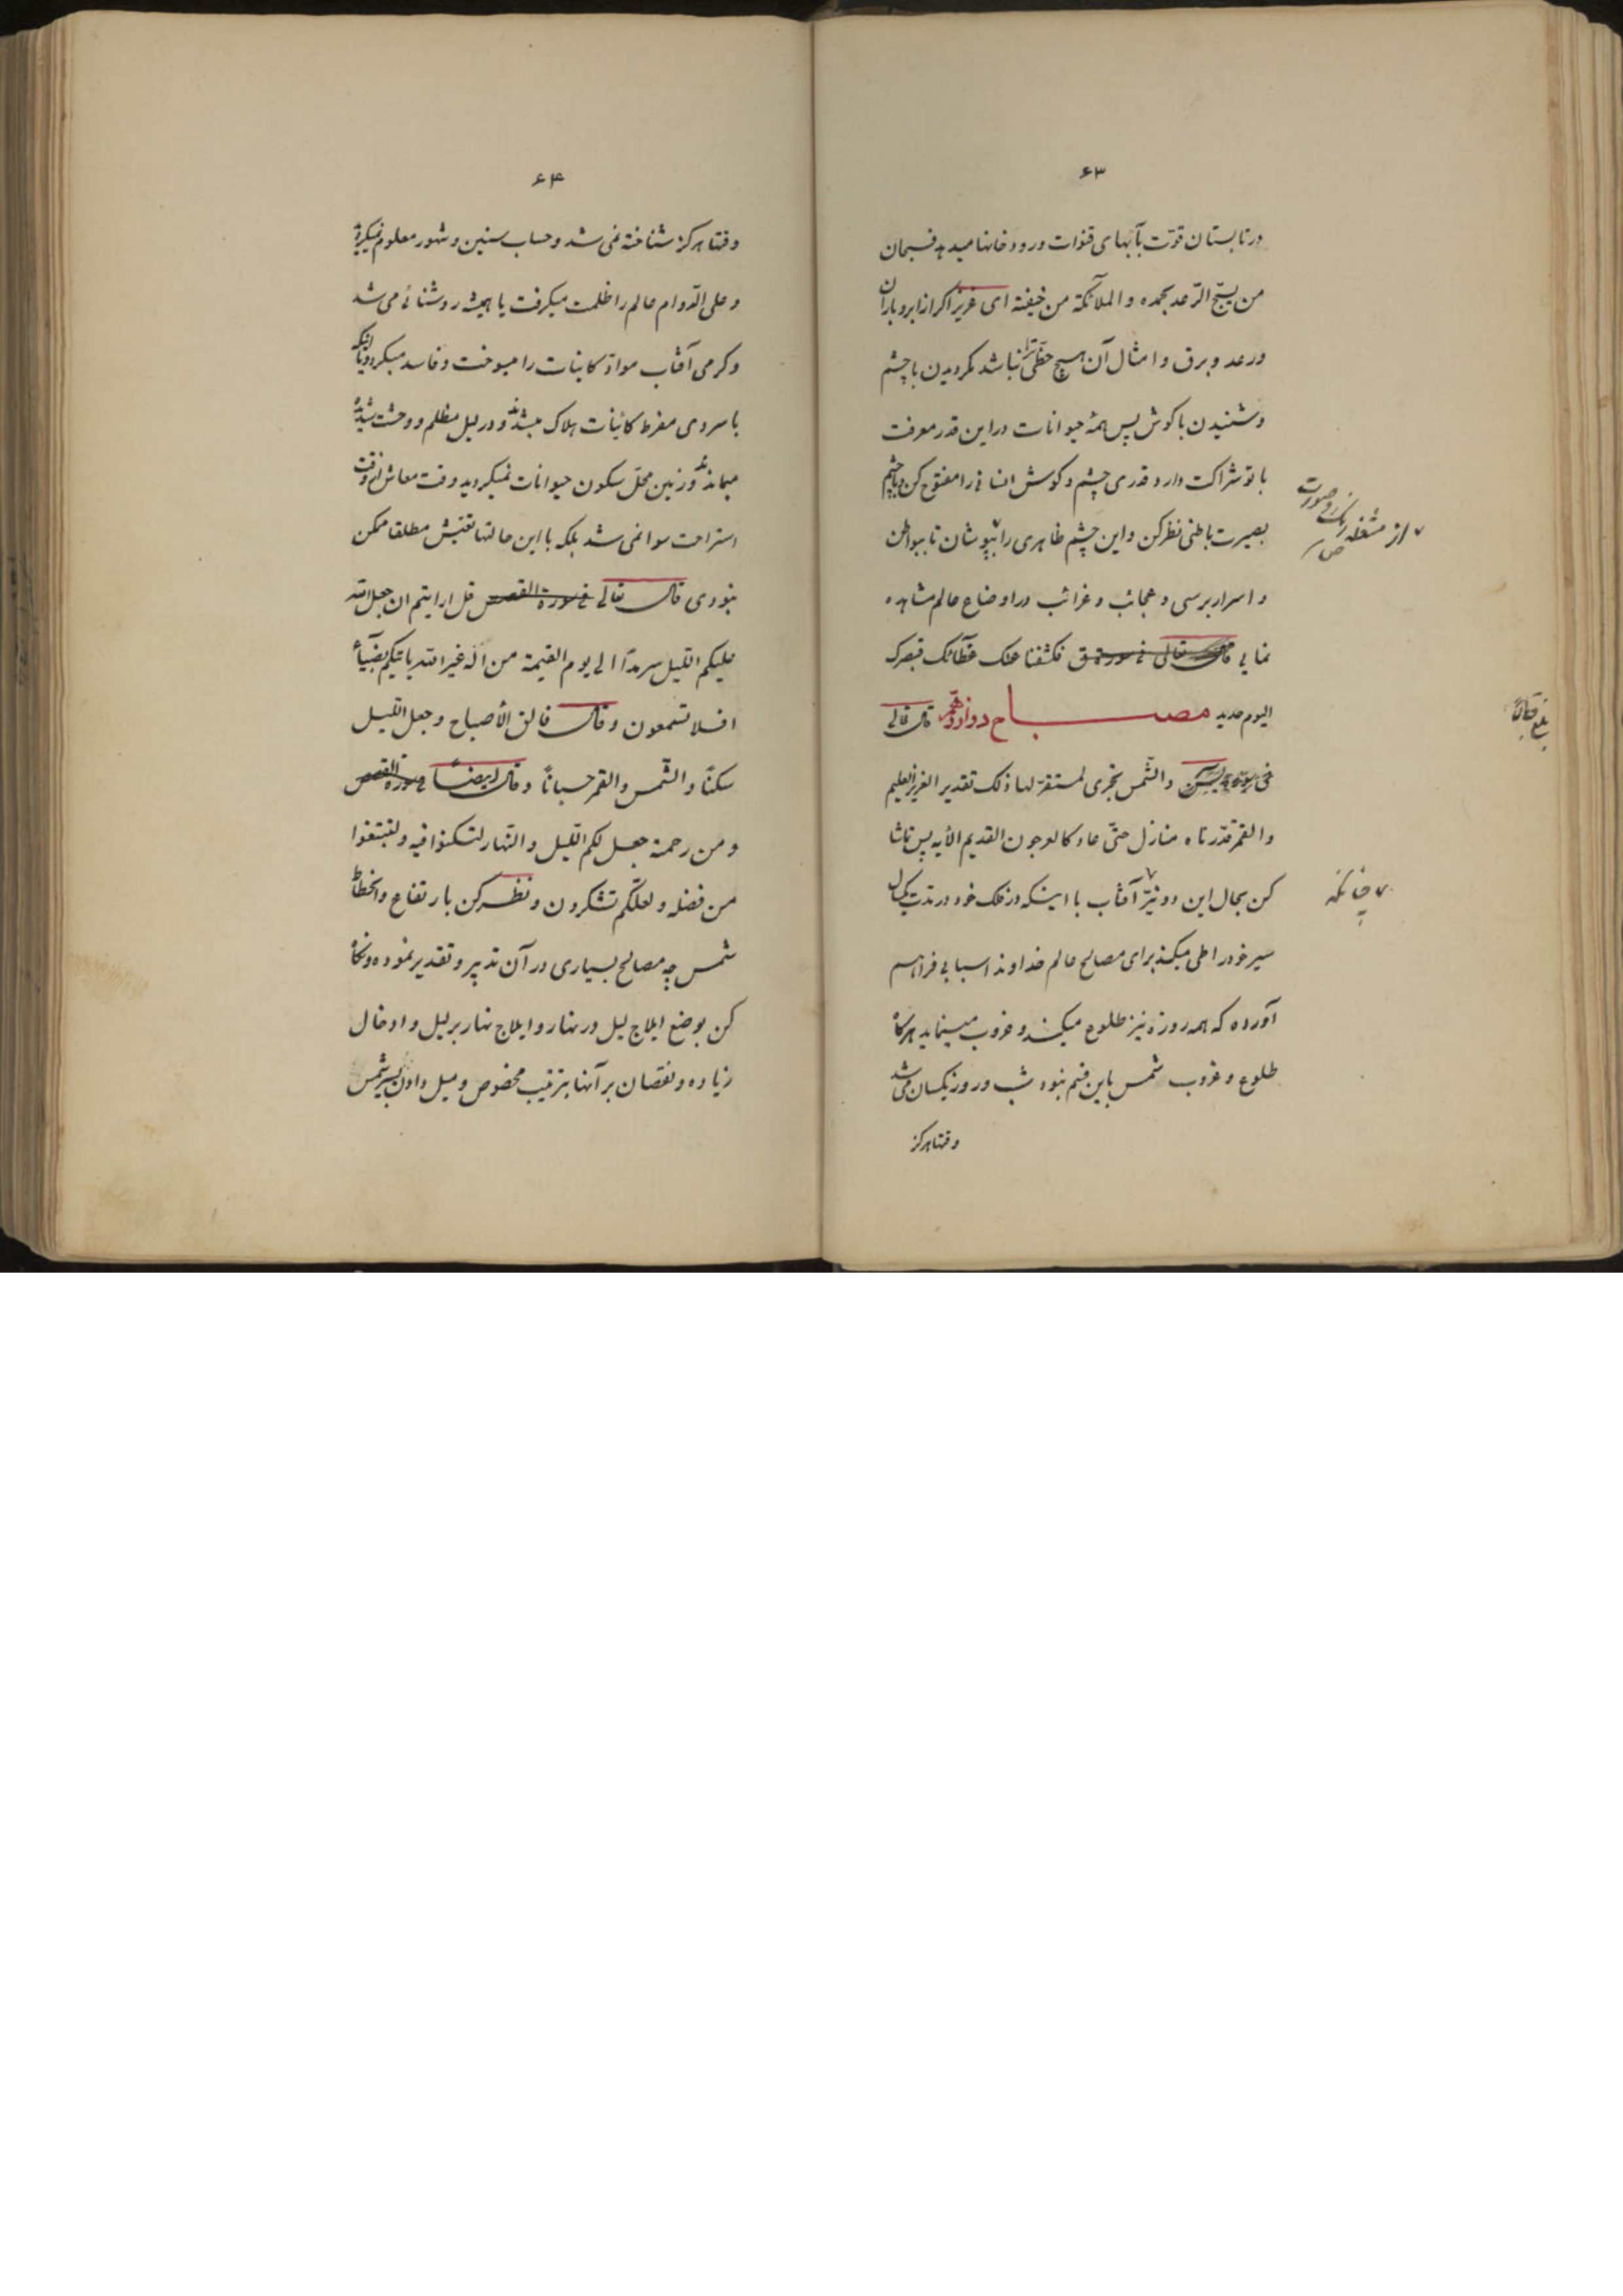 ۶۳
در تابستان قوّت بآبهای قنوات و رودخانها میدهد فسبحان
من یسبّح الرّعد بحمده و الملآئکة من خیفته ای عزیز اگر از ابر و باران
و رعد و برق و امثال آن هیچ حظّی ترا نباشد مگر دیدن با چشم
و شنیدن با گوش پس همۀ حیوانات در این قدر معرفت
با تو شراکت دارد قدری چشم و گوش انسانی را مفتوح کن و با چشم
بصیرت باطنی نظر کن و این چشم ظاهری را بپوشان تا ببواطن
و اسرار برسی و عجائب و غرائب در اوضاع عالم مشاهده
نمایی قال تعالی فی سورة ق فکشفنا عنک غطآئک فبصرک
الیوم حدید مصباح دوازدهم قال تعالی
فی سورة یس والشّمس تجری لمستقرّ لها ذلک تقدیر العزیز العلیم
والقمر قدّرناه منازل حتّی عاد کالعرجون القدیم الآیه پس تماشا
کن بحال این دو نیّر آفتاب با اینکه در فلک خود در مدّت یکسال
سیر خود را طی میکند برای مصالح عالم خداوند اسبابی فراهم
آورده که همه روزه نیز طلوع میکند و غروب مینماید هرگاه
طلوع و غروب شمس باین قسم نبود شب و روز یکسان می شد
وقتا هرگز
از مشغله رنگ و صورت
صح
چنانکه
بلغ قبالاً
۶۴
وقتا هرگز شناخته نمی شد و حساب سنین و شهور معلوم نمیگردید
و علی الدّوام عالم را ظلمت میگرفت یا همیشه روشنائی می شد
و گرمی آفتاب موادّ کاینات را میسوخت و فاسد میکرد و یا اینکه
با سردی مفرط کائنات هلاک میشدند و در لیل مظلم و وحشت شدید
میماندند و زمین محلّ سکون حیوانات نمیگردید وقت معاش از وقت
استراحت سوا نمی شد بلکه با این حالتها تعیّش مطلقا ممکن
نبودی قال تعالی فی سورة القصص قل ارایتم ان جعل الله
علیکم اللّیل سرمدًا الی یوم القیمة من اله غیر الله یاتیکم بضیآء
افلا تسمعون و قال فالق الأصباح و جعل اللّیل
سکنًا و الشّمس و القمر حسبانًا و قال ایضًا فی سورة القصص
و من رحمته جعل لکم اللّیل و النّهار لتسکنوا فیه و لتبتغوا
من فضله و لعلّکم تشکرون و نظر کن بارتفاع و انحطاط
شمس چه مصالح بسیاری در آن تدبیر و تقدیر نموده و نگاه
کن بوضع ایلاج لیل در نهار و ایلاج نهار بر لیل و ادخال
زیاده و نقصان بر آنها بترتیب مخصوص و میل دادن بسیر شمس